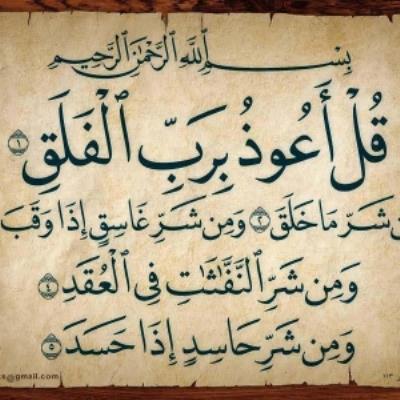 بِسْمِ ٱللَّهِ ٱلرَّحْمَٰنِ ٱلرَّحِيمِ
قُلْ أَعُوذُ بِرَبِّ ٱلْفَلَقِ ١
شَرِّ مَا خَلَقَ ٢ وَمِن شَرِّ غَاسِقٍ إِذَا وَقَبَ
وَمِن شَرِّ ٱلنَّفَّٰثَٰتِ فِى ٱلْعُقَدِ ٤
وَمِن شَرِّ حَاسِدٍ إِذَا حَسَدَ ٥
@gmail.com
١١٣